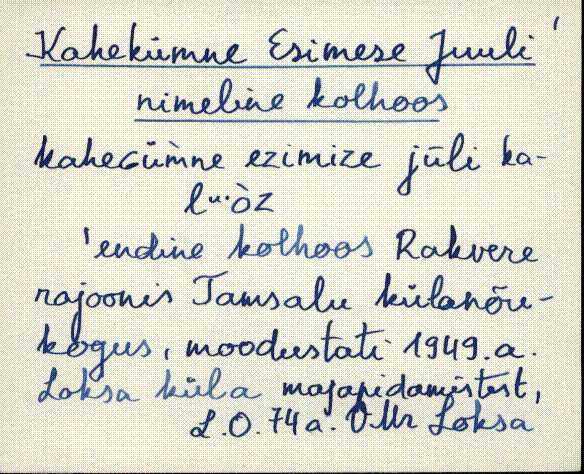 Kahekümne Esimese Juuli
nimeline kolhoos
kaheGüm̀ne ezimize jūli ka-
luòz
'endine kolhoos Rakvere
rajoonis Tamsalu külanõu-
kogus, moodustati 1949.a.
Loksa küla majapidamistest,
L.O. 74 a. VMr Loksa